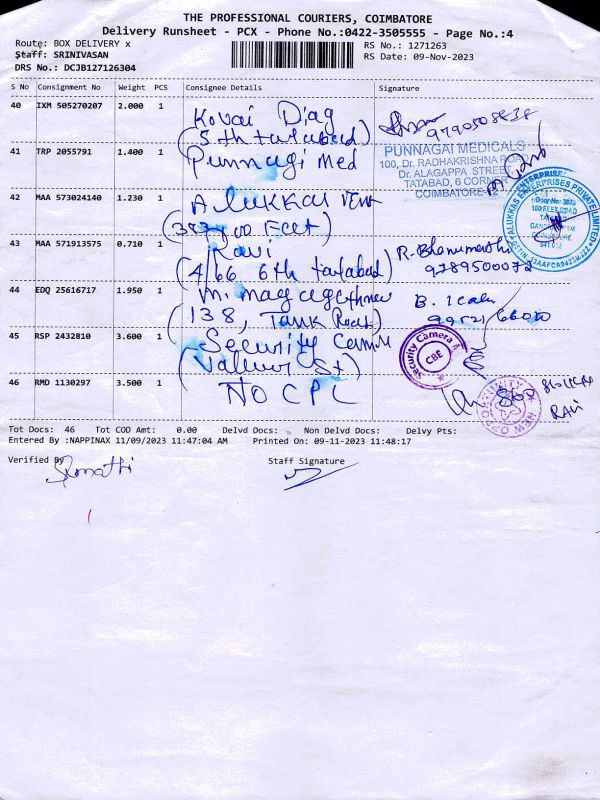 THE PROFESSIONAL COURIERS, COIMBATORE
Delivery Runsheet - PCX - Phone No.:0422-3505555 - Page No.:4
Route: BOX DELIVERY x
Staff: SRINIVASAN
DRS No.: DCJB127126304
RS No.: 1271263
RS Date: 09-Nov-2023
S No Consignment No Weight PCS Consignee Details Signature
40 IXM 505270207 2.000 1 Kovai Diag
(5th tatabad)
41 TRP 2055791 1.400 1 Punnagi Med
PUNNAGAI MEDICALS
100, Dr. RADHAKRISHNA ROAD
Dr. ALAGAPPA STREET
TATABAD, 6 CORNER
COIMBATORE-12
42 MAA 573024140 1.230 1 Alukkai
Feet
ALUKKAS ENTERPRISES PRIVATE LIMITED
43 MAA 571913575 0.710 1 Ravi
(4/66 6th tatabad) R. Bhanumathi
9789500072
44 EDQ 25616717 1.950 1
(138, Tank Road)
45 RSP 2432810 3.600 1 Security
Security Camera
CBE
46 RMD 1130297 3.500 1 NO CPL
RAVI
Tot Docs: 46 Tot COD Amt: 0.00 Delvd Docs: Non Delvd Docs: Delvy Pts:
Entered By :NAPPINAX 11/09/2023 11:47:04 AM Printed On: 09-11-2023 11:48:17
Verified By Staff Signature